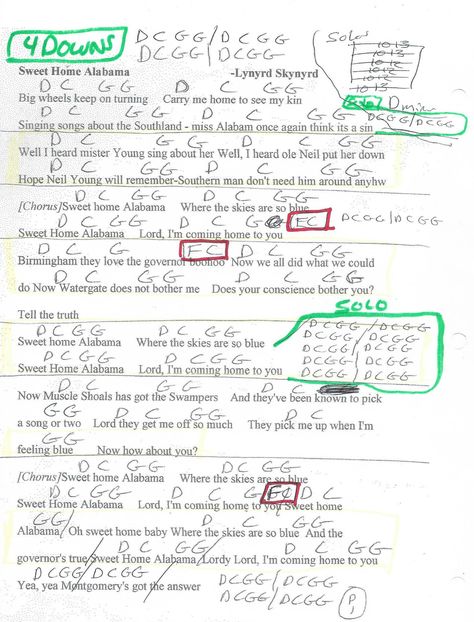 4 DOWNS D C G G / D C G G Solos
D C G G / D C G G
10 13
10 13
10 12
10 12
10 12
10 13
Sweet Home Alabama -Lynyrd Skynyrd
D C G G D C G G
Big wheels keep on turning Carry me home to see my kin
D C G G D C G G DCGG/DCGG
Singing songs about the Southland - miss Alabam once again think its a sin
D C G G D C G G
Well I heard mister Young sing about her Well, I heard ole Neil put her down
D C G G D C G G
Hope Neil Young will remember-Southern man don't need him around anyhw
D C G G D C G G
[Chorus]Sweet home Alabama Where the skies are so blue
D C G G D C G FC DCGG/DCGG
Sweet Home Alabama Lord, I'm coming home to you
D C G FC D C G G
Birmingham they love the governor booboo Now we all did what we could
D C G G D C G G
do Now Watergate does not bother me Does your conscience bother you?
SOLO
Tell the truth
D C G G D C G G DCGG/DCGG
Sweet home Alabama Where the skies are so blue DCGG/DCGG
D C G G D C G G DCGG/DCGG
Sweet Home Alabama Lord, I'm coming home to you DCGG/DCGG
DCGG/DCGG
D C G G D C
Now Muscle Shoals has got the Swampers And they've been known to pick
G G D C G G D C
a song or two Lord they get me off so much They pick me up when I'm
G G D C G G
feeling blue Now how about you?
D C G G D C G G
[Chorus]Sweet home Alabama Where the skies are so blue
D C G G D C G FC D C
Sweet Home Alabama Lord, I'm coming home to you Sweet home
GG/ D C G G D C G G
Alabama Oh sweet home baby Where the skies are so blue And the
D C G G D C G G
governor's true Sweet Home Alabama Lordy Lord, I'm coming home to you
DCGG/DCGG DCGG/DCGG
Yea, yea Montgomery's got the answer DCGG/DCGG